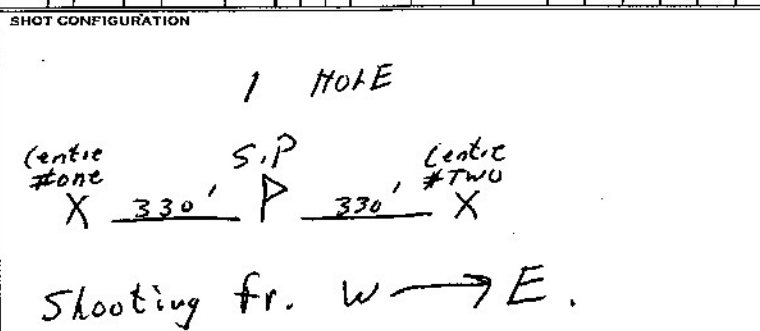 SHOT CONFIGURATION
1 HOLE
Centre S.P Centre
#one #TWO
X 330' P 330' X
Shooting fr. W → E.